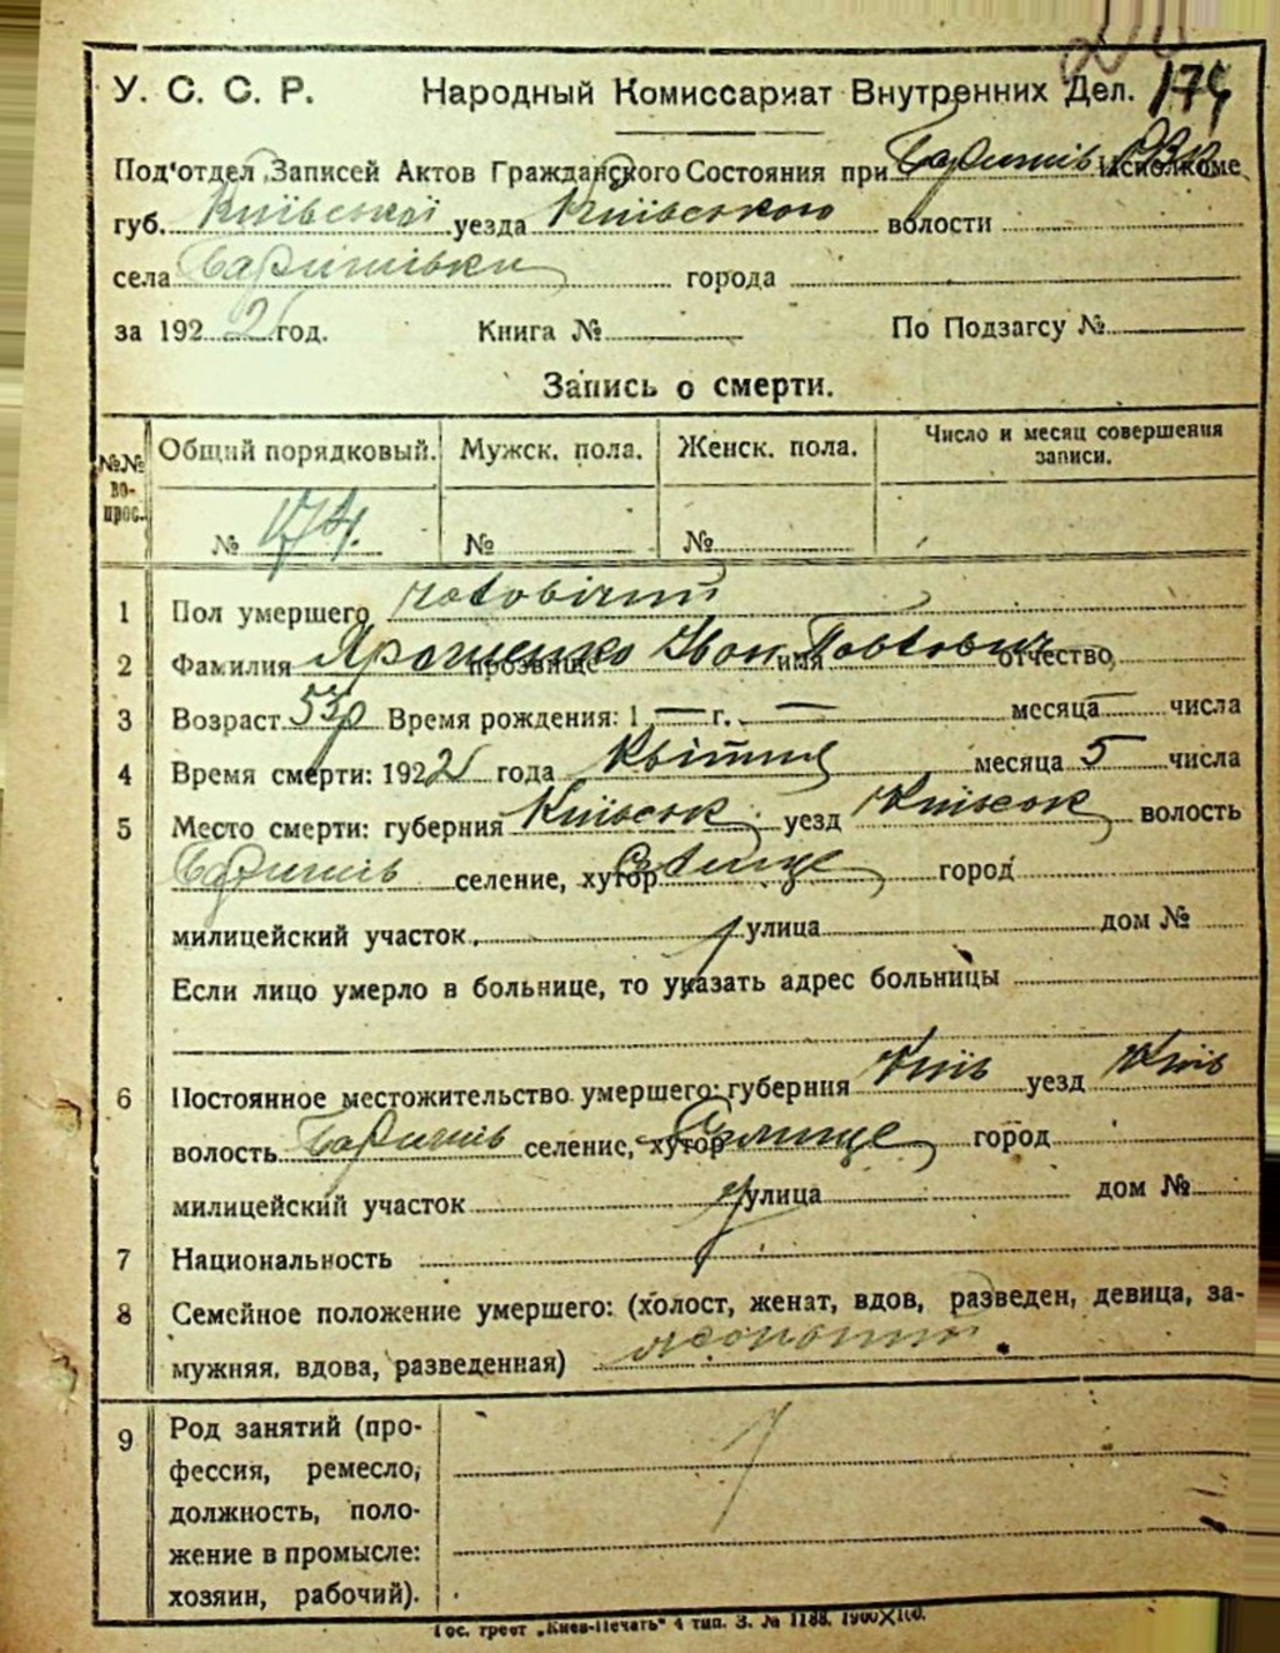 У. С. С. Р. Народный Комиссариат Внутренних Дел. 174
Под'отдел Записей Актов Гражданского Состояния при Баришів Исполкоме
губ. Київської уезда Київського волости
села Баришівки города
за 1922 год. Книга № По Подзагсу №
Запись о смерти.
№№ вопрос. Общий порядковый. Мужск. пола. Женск. пола. Число и месяц совершения записи.
№ 174. № №
1 Пол умершего чоловічий
2 Фамилия Ярошенко прозвище Іван имя Павлович отчество
3 Возраст 53 р Время рождения: 1 — г. — месяца — числа
4 Время смерти: 1922 года Квітня месяца 5 числа
5 Место смерти: губерния Київськ уезд Київськ волость
Баришів селение, хутор Селище город
милицейский участок улица дом №
Если лицо умерло в больнице, то указать адрес больницы
6 Постоянное местожительство умершего: губерния Київ уезд Київ
волость Баришів селение, хутор Селище город
милицейский участок улица дом №
7 Национальность
8 Семейное положение умершего: (холост, женат, вдов, разведен, девица, за-
мужняя, вдова, разведенная) жонатий
9 Род занятий (про-
фессия, ремесло,
должность, поло-
жение в промысле:
хозяин, рабочий).
Гос. трест „Киев-Печать" 4 тип. З. № 1188. 1900×100.